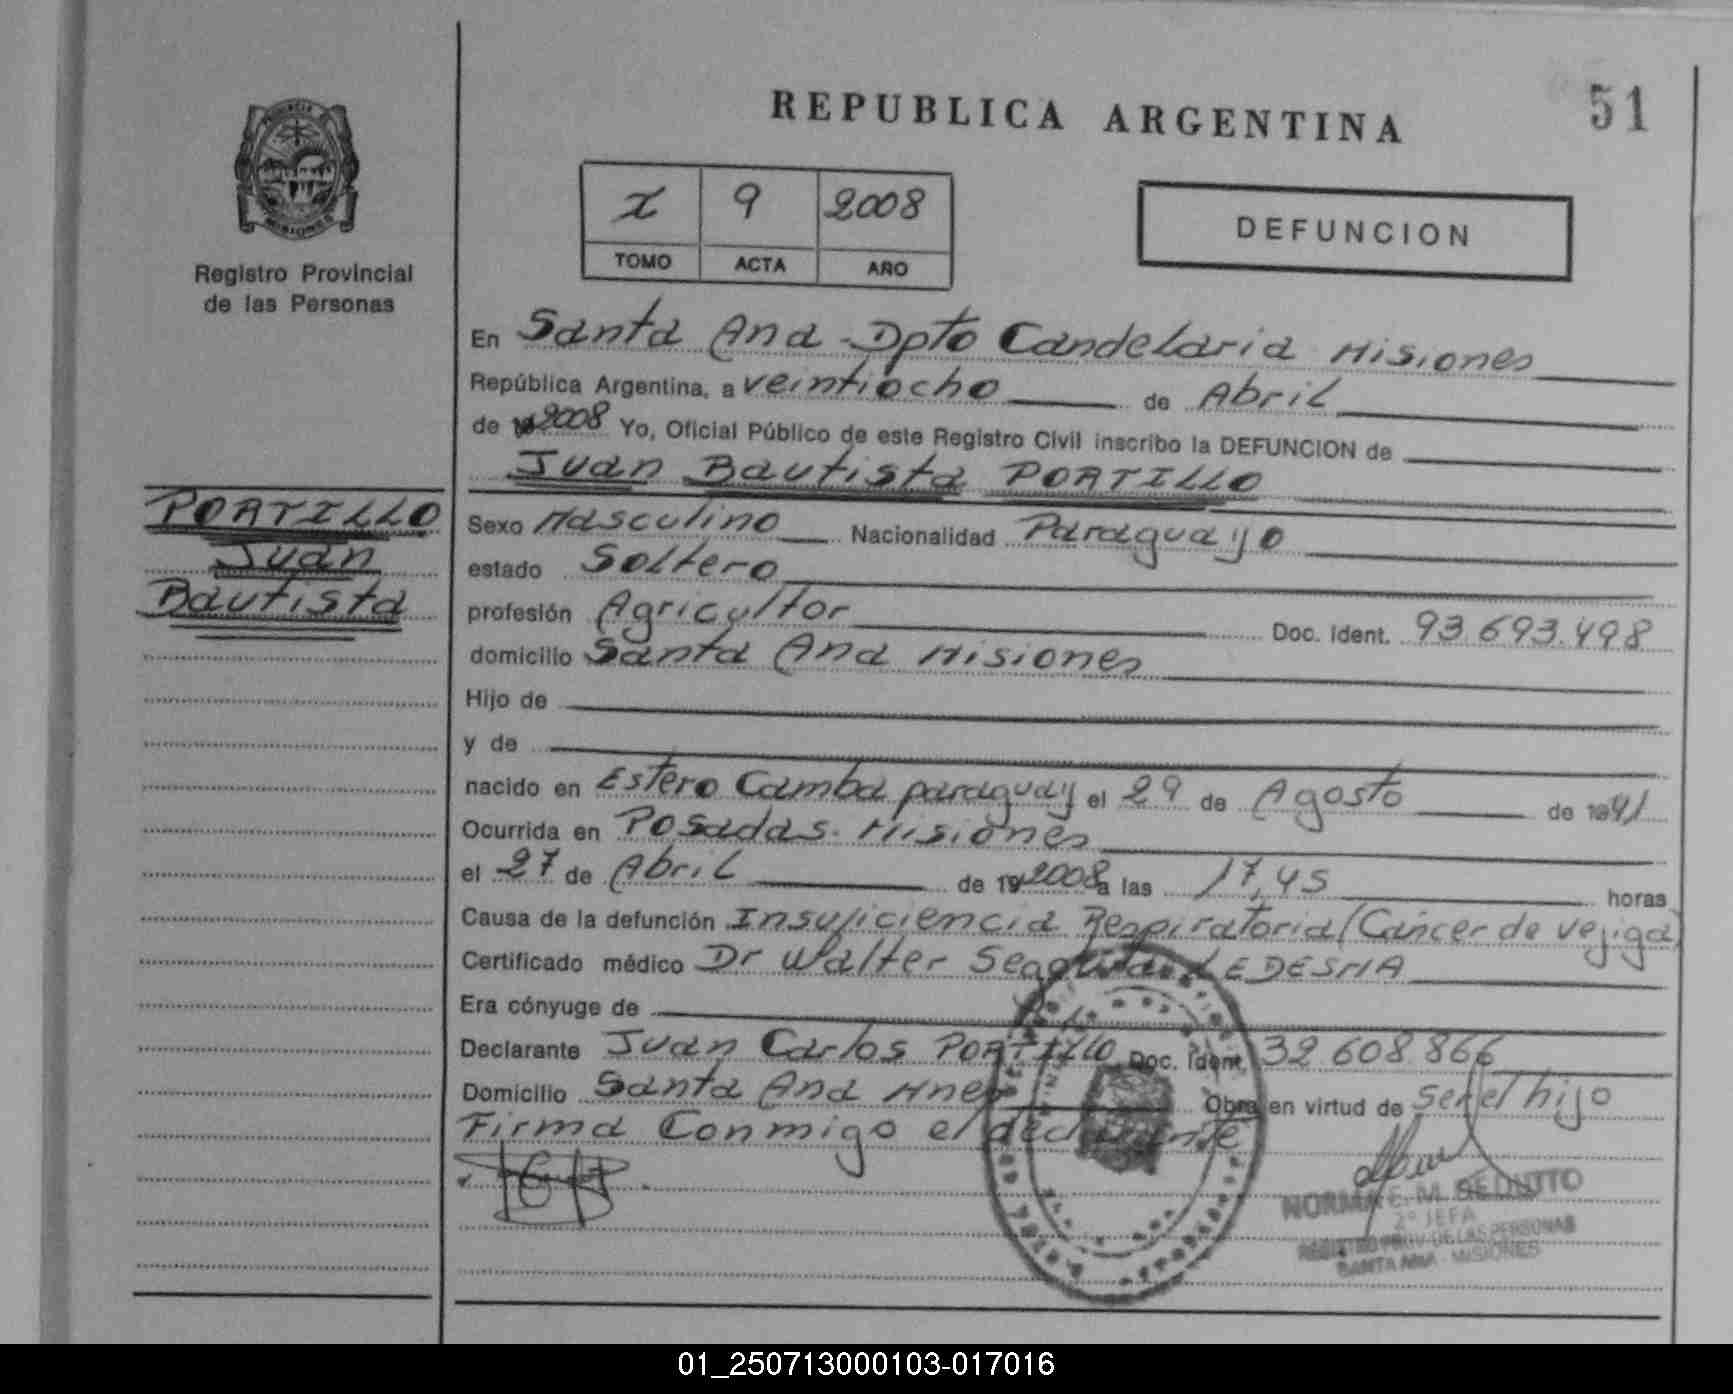 REPUBLICA ARGENTINA
51
PROVINCIA
MISIONES
Registro Provincial
de las Personas
I 9 2008
TOMO ACTA AÑO
DEFUNCION
En Santa Ana Dpto Candelaria Misiones
República Argentina, a veintiocho de Abril
de 2008 Yo, Oficial Público de este Registro Civil inscribo la DEFUNCION de
Juan Bautista PORTILLO
PORTILLO
Juan
Bautista
Sexo Masculino Nacionalidad Paraguayo
estado Soltero
profesión Agricultor Doc. Ident. 93.693.498
domicilio Santa Ana Misiones
Hijo de
y de
nacido en Estero Camba paraguay el 29 de Agosto de 1941
Ocurrida en Posadas. Misiones
el 27 de Abril de 19 2008 a las 17,45 horas
Causa de la defunción Insuficiencia Respiratoria (Cáncer de vejiga)
Certificado médico Dr Walter LEDESMA
Era cónyuge de
Declarante Juan Carlos PORTILLO Doc. Ident. 32.608.866
Domicilio Santa Ana Mnes Obra en virtud de ser el hijo
Firma Conmigo el declarante
NORMA C. M. DEDIUTTO
2º JEFA
REGISTRO PROV. DE LAS PERSONAS
SANTA ANA - MISIONES
01_250713000103-017016